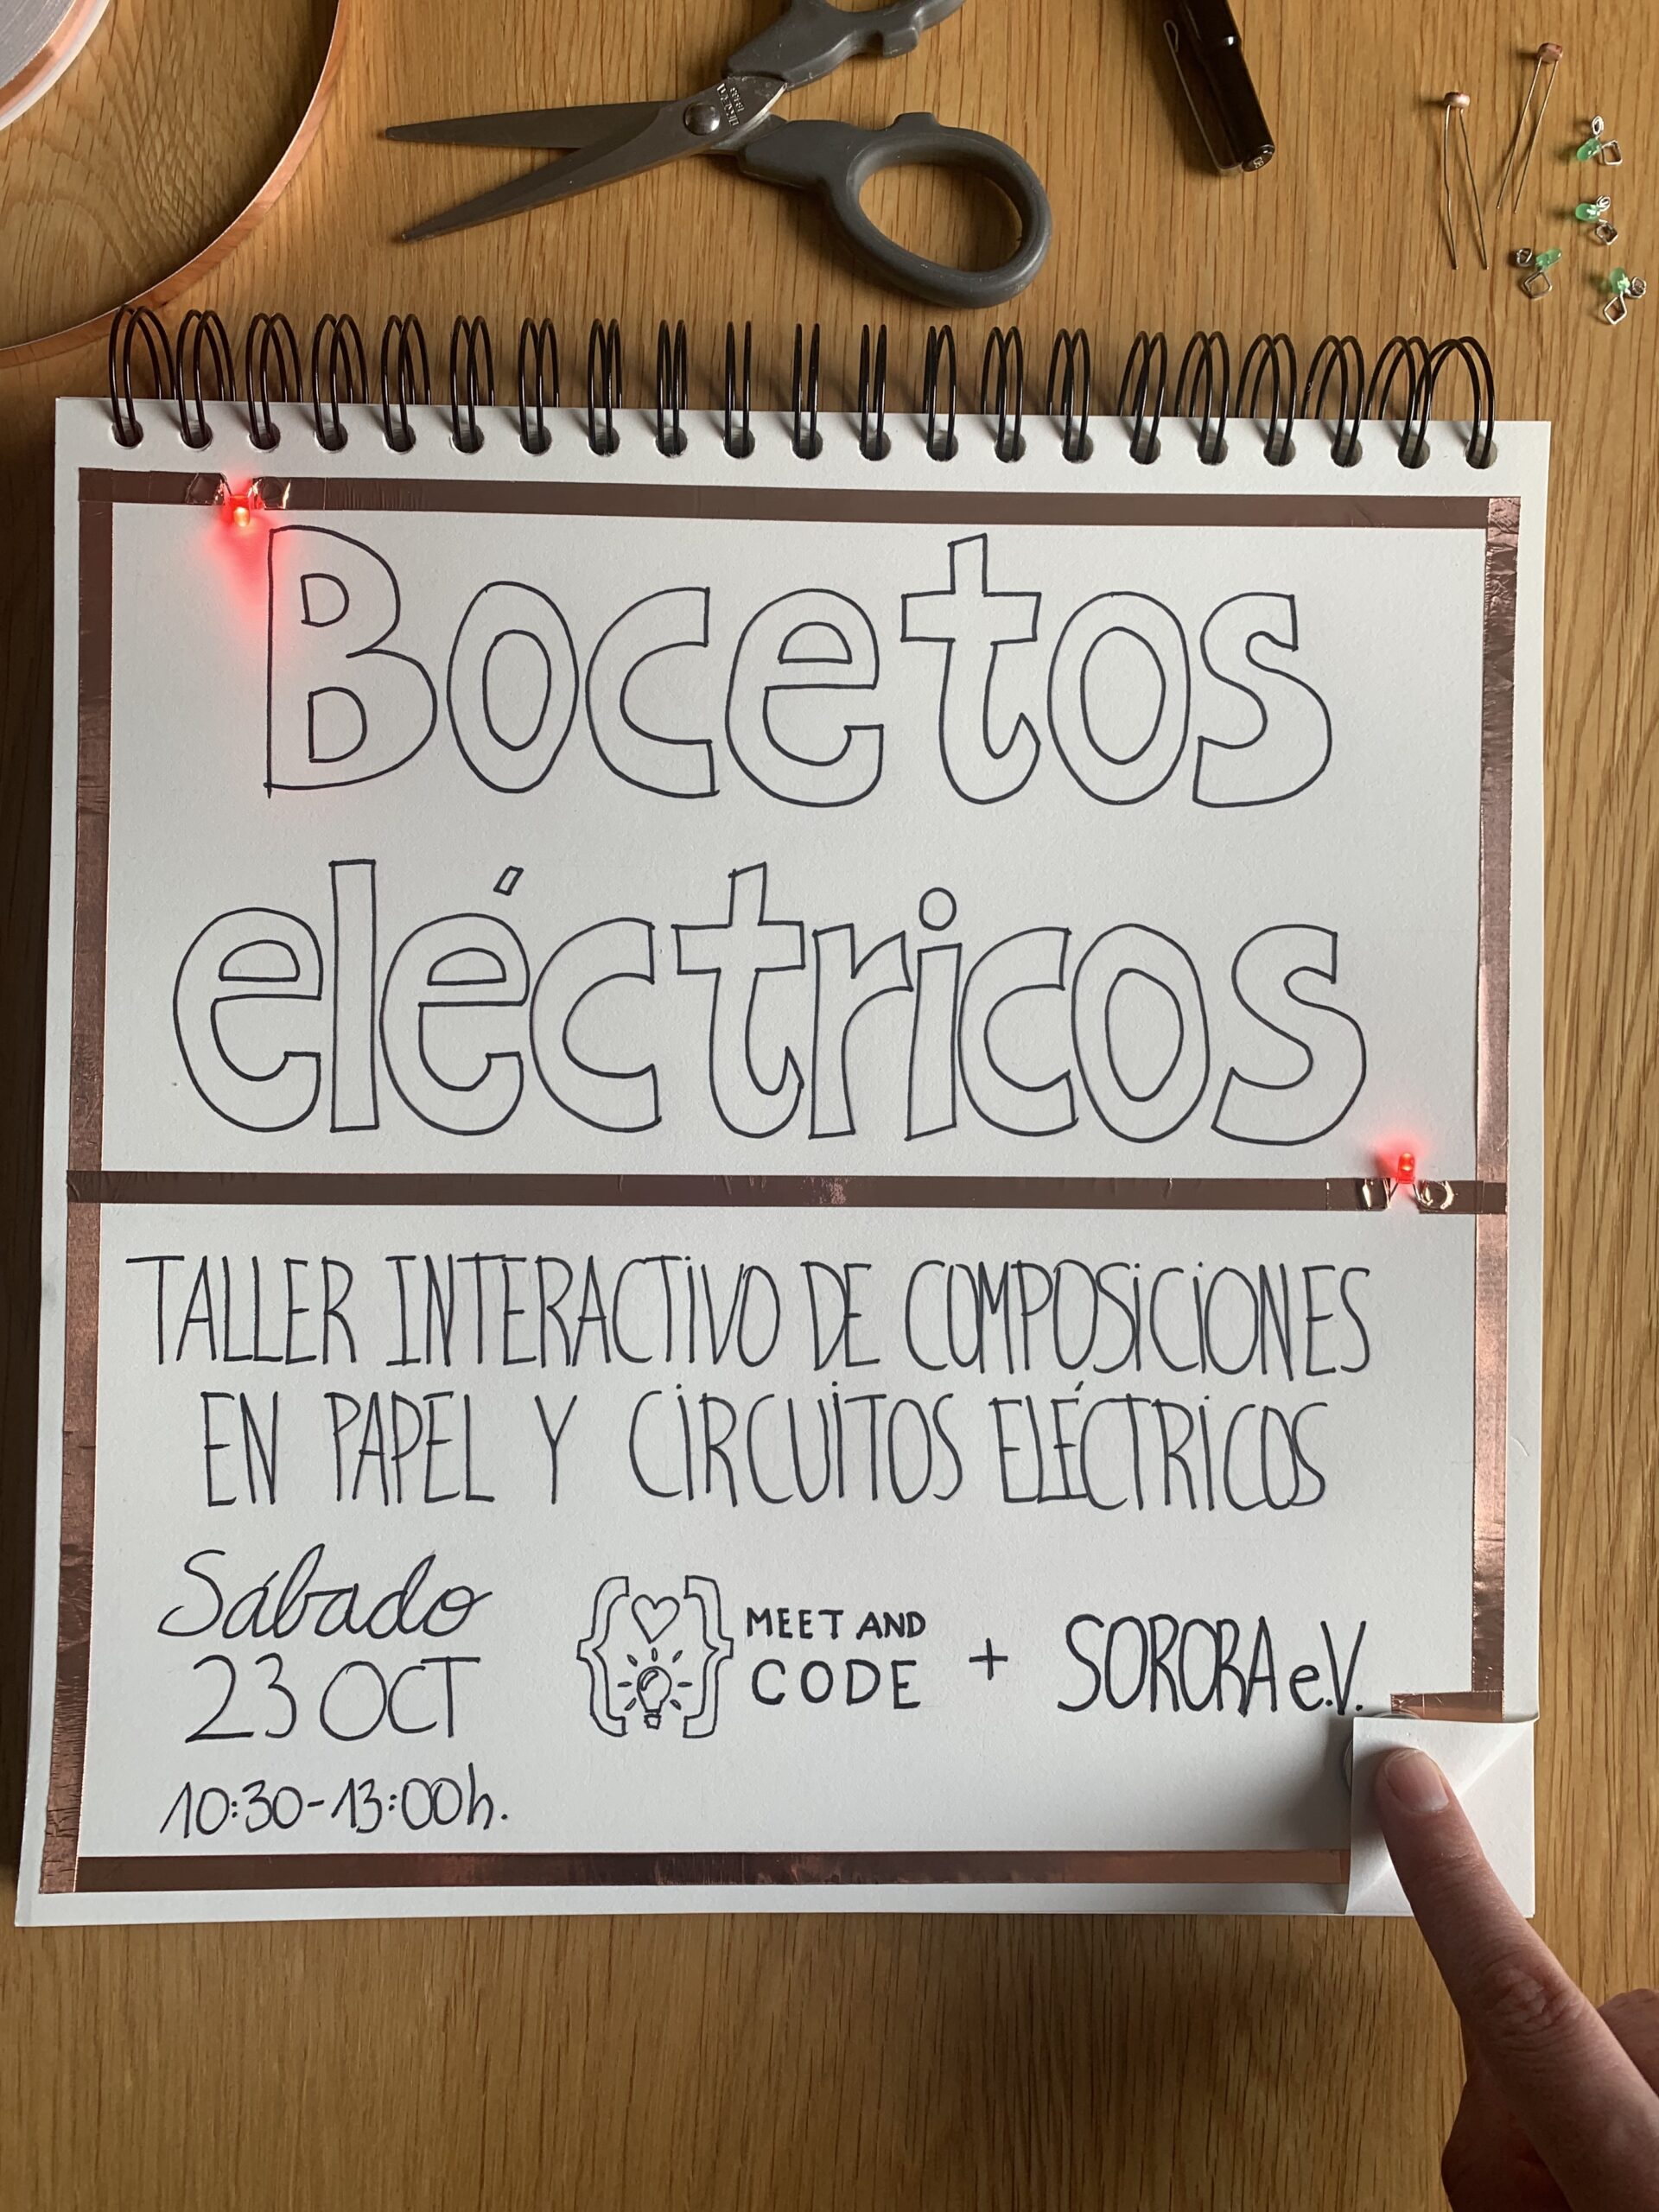 Bocetos
eléctricos
TALLER INTERACTIVO DE COMPOSICIONES
EN PAPEL Y CIRCUITOS ELÉCTRICOS
Sábado
23 OCT
10:30-13:00h.
MEET AND
CODE
+ SORORA e.V.